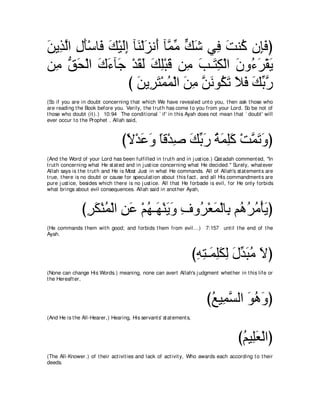 (فَإِن كُنتَ فِي شَكٍّ مِّمَّآ أَنزَلْنَآ إِلَيْكَ فَاسْأَلِ الَّذِينَ
يَقْرَءُونَ الْكِتَـبَ مِن قَبْلِكَ لَقَدْ جَآءَكَ الْحَقُّ مِن
رَّبِّكَ فَلاَ تَكُونَنَّ مِنَ الْمُمْتَرِينَ )
(So if you are in doubt concerning that which We have revealed unto you, then ask those who
are reading the Book before you. Verily, the truth has come to you from your Lord. So be not of
those who doubt (it).) 10:94 The conditional `if' in this Ayah does not mean that `doubt' will
ever occur to the Prophet . Allah said,
(وَتَمَّتْ كَلِمَةُ رَبِّكَ صِدْقاً وَعَدْلاً)
(And the Word of your Lord has been fulfilled in truth and in justice.) Qatadah commented, "In
truth concerning what He stated and in justice concerning what He decided." Surely, whatever
Allah says is the truth and He is Most Just in what He commands. All of Allah's statements are
true, there is no doubt or cause for speculation about this fact, and all His commandments are
pure justice, besides which there is no justice. All that He forbade is evil, for He only forbids
what brings about evil consequences. Allah said in another Ayah,
(يَأْمُرُهُم بِالْمَعْرُوفِ وَيَنْهَـهُمْ عَنِ الْمُنْكَرِ)
(He commands them with good; and forbids them from evil...) 7:157 until the end of the
Ayah.
(لاَ مُبَدِّلَ لِكَلِمَـتِهِ)
(None can change His Words.) meaning, none can avert Allah's judgment whether in this life or
the Hereafter,
(وَهُوَ السَّمِيعُ)
(And He is the All-Hearer,) Hearing, His servants' statements,
(الْعَلِيمُ)
(The All-Knower.) of their activities and lack of activity, Who awards each according to their
deeds.